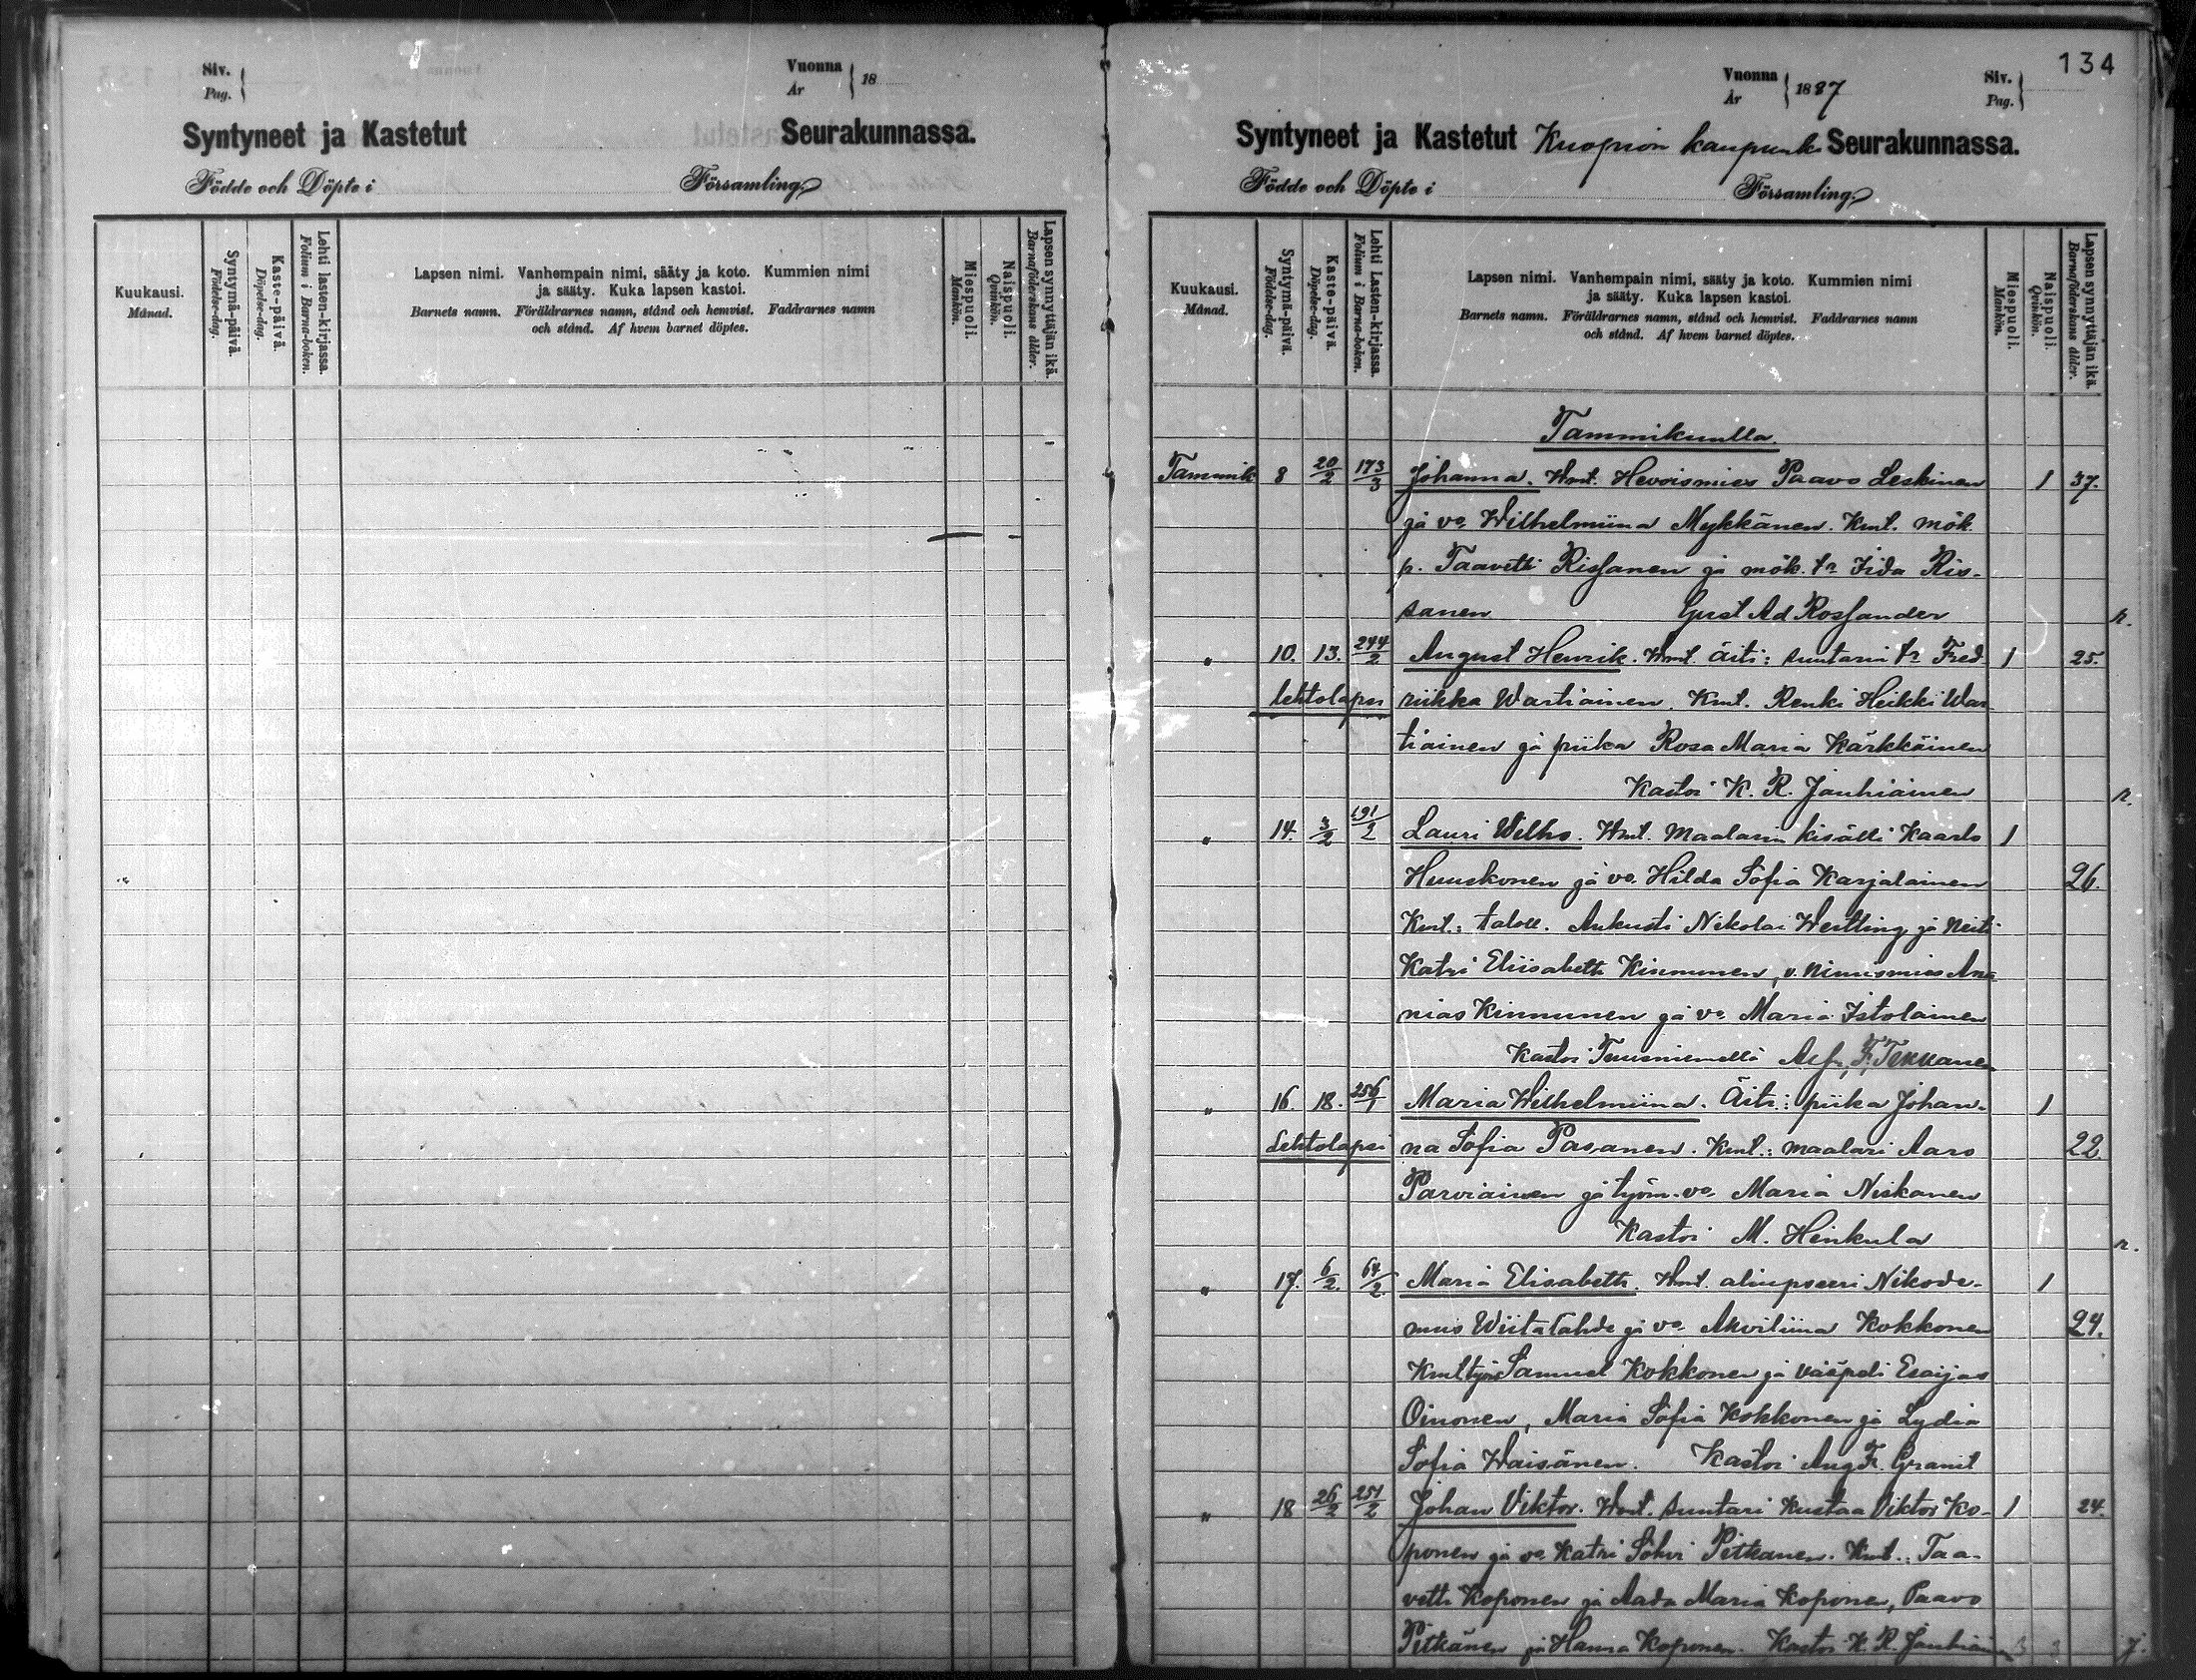 Siv.
Pag.
Vuonna
År
18
Syntyneet ja Kastetut Seurakunnassa.
Födde och Döpte i Församling
Kuukausi.
Månad.
Syntymä-päivä.
Födelse-dag.
Kaste-päivä.
Döpelse-dag.
Lehti lasten-kirjassa.
Folium i Barna-boken.
Lapsen nimi. Vanhempain nimi, sääty ja koto. Kummien nimi
ja sääty. Kuka lapsen kastoi.
Barnets namn. Föräldrarnes namn, stånd och hemvist. Faddrarnes namn
och stånd. Af hvem barnet döptes.
Miespuoli.
Mankön.
Naispuoli.
Qvinkön.
Lapsen synnyttäjän ikä.
Barnaföderskans ålder.
134
Vuonna
År
1887
Siv.
Pag.
Syntyneet ja Kastetut Kuopion kaupunk. Seurakunnassa.
Födde och Döpte i Församling
Kuukausi.
Månad.
Syntymä-päivä.
Födelse-dag.
Kaste-päivä.
Döpelse-dag.
Lehti Lasten-kirjassa.
Folium i Barna-boken.
Lapsen nimi. Vanhempain nimi, sääty ja koto. Kummien nimi
ja sääty. Kuka lapsen kastoi.
Barnets namn. Föräldrarnes namn, stånd och hemvist. Faddrarnes namn
och stånd. Af hvem barnet döptes.
Miespuoli.
Mankön.
Naispuoli.
Qvinkön.
Lapsen synnyttäjän ikä.
Barnaföderskans ålder.
Tammikuulla.
Tammik 8 20/2 173/3 Johanna. Wmt. Hevoismies Paavo Leskinen 1 37.
ja vo. Wilhelmiina Mykkänen. Kmt. mök.
p. Taavetti Rissanen ja mök. tr Iida Ris-
sanen Gust Ad Rossander r.
" 10. 13. 244/2 August Henrik. Wmt. äiti: suutarin tr Fred- 1 25.
lehtolapsi riikka Wartiainen. Kmt. Renki Heikki War
tiainen ja piika Rosa Maria Kärkkäinen
Kastoi K. R. Jauhiainen r.
" 14. 3/2 191/2 Lauri Wilho. Wmt. Maalarin kisälli Kaarlo 1
Huuskonen ja vo. Hilda Sofia Karjalainen 26.
Kmt.: taloll. Aukusti Nikolai Westling ja Neiti
Katri Eliisabeth Kinnunen, v. nimismies Ana
nias Kinnunen ja vo. Maria Istolainen
Kastoi Tuusniemellä F.
" 16. 18. 256/1 Maria Wilhelmiina. Äiti: piika Johan- 1
Lehtolapsi na Sofia Pasanen. Kmt.: maalari Aaro 22.
Parviainen ja työm. vo. Maria Niskanen
Kastoi M. Heinkula r.
" 17. 6/2. 64/2. Maria Elisabeth. Wmt. aliupseeri Nikode- 1
mus Wiitalahde ja vo. Akviliina Kokkonen 24.
Kmt työm Samuel Kokkonen ja vääpeli Esaijas
Oinonen, Maria Sofia Kokkonen ja Lydia
Sofia Waisänen. Kastoi Aug Fr. Granit
" 18 26/2 251/2 Johan Viktor. Wmt. suutari Kustaa Viktor Ko- 1 24.
ponen ja vo. Katri Sohvi Pitkänen. Kmt.: Taa-
vetti Koponen ja Aada Maria Koponen, Paavo
Pitkänen ja Hanna Koponen. Kastoi K. R. Jauhiainen 3 3